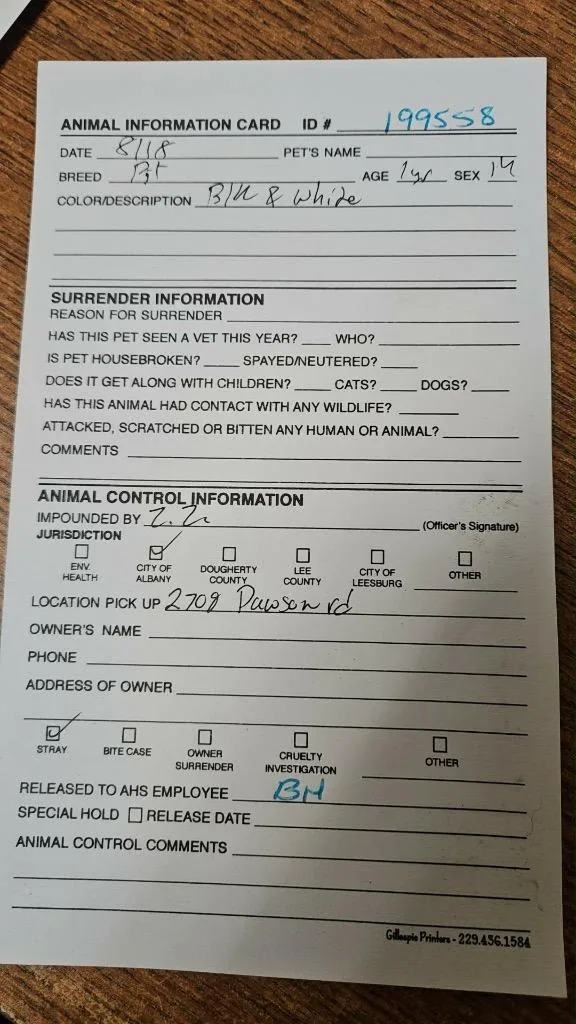 ANIMAL INFORMATION CARD ID # 199558
DATE 8/18 PET'S NAME
BREED Pit AGE 1yr SEX M
COLOR/DESCRIPTION Blk & White
SURRENDER INFORMATION
REASON FOR SURRENDER
HAS THIS PET SEEN A VET THIS YEAR? WHO?
IS PET HOUSEBROKEN? SPAYED/NEUTERED?
DOES IT GET ALONG WITH CHILDREN? CATS? DOGS?
HAS THIS ANIMAL HAD CONTACT WITH ANY WILDLIFE?
ATTACKED, SCRATCHED OR BITTEN ANY HUMAN OR ANIMAL?
COMMENTS
ANIMAL CONTROL INFORMATION
IMPOUNDED BY (Officer's Signature)
JURISDICTION
ENV. HEALTH
CITY OF ALBANY
DOUGHERTY COUNTY
LEE COUNTY
CITY OF LEESBURG
OTHER
LOCATION PICK UP 2708 Dawson rd
OWNER'S NAME
PHONE
ADDRESS OF OWNER
STRAY
BITE CASE
OWNER SURRENDER
CRUELTY INVESTIGATION
OTHER
RELEASED TO AHS EMPLOYEE BH
SPECIAL HOLD RELEASE DATE
ANIMAL CONTROL COMMENTS
Gillespie Printers - 229.436.1584